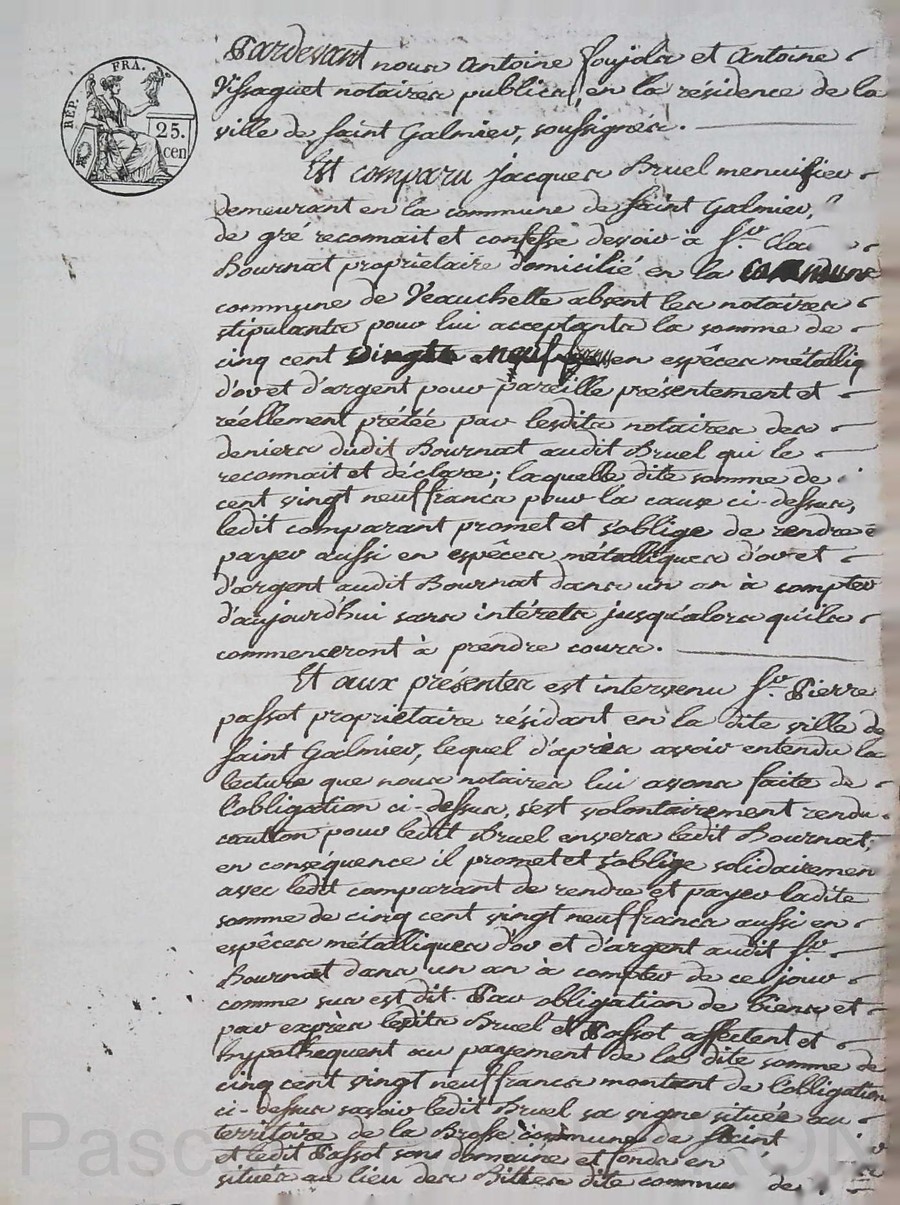 RÉP. FRA.
25.
cen
Pardevant nous Antoine Foujols et Antoine
Vissaguet notaires publics, en la résidence de la
ville de saint Galmier, soussignés.
Est comparu jacques Bruel menuisier
demeurant en la commune de saint Galmier,
de gré reconnait et confesse devoir à Sr. Cla
Bournat propriétaire domicilié en la commune
commune de Veauchette absent les notaires
stipulants pour lui acceptants la somme de
cinq cent vingts neuf francs en espêces métalliq
d'or et d'argent pour pareille présentement et
réellement prétée par lesdits notaires des
deniers dudit Bournat audit Bruel qui le
reconnait et déclare; laquelle dite somme de
cent vingt neuf francs pour la cause ci-dessus,
ledit comparant promet et s'oblige de rendre e
payer aussi en espêces métalliques d'or et
d'argent audit Bournat dans un an à compter
d'aujourd'hui sans intérets jusqu'alors qu'ils
commenceront à prendre cours.
Et aux présentes est intervenu Sr. Pierre
passot propriétaire résidant en la dite ville de
saint Galmier, lequel d'après avoir entendu la
lecture que nous notaires lui avons faite de
l'obligation ci-dessus, s'est volontairement rendu
caution pour ledit Bruel envers ledit Bournat,
en conséquence il promet et s'oblige solidairemen
avec ledit comparant de rendre et payer ladite
somme de cinq cent vingt neuf francs aussi en
espêces métalliques d'or et d'argent audit Sr.
Bournat dans un an à compter de ce jour
comme sus est dit. Par obligation de biens et
par exprès lesdits Bruel et Passot affectent et
hypothequent au payement de la dite somme de
cinq cent vingt neuf francs montant de l'obligation
ci-dessus savoir ledit Bruel sa vigne située au
territoire de la Brosse commune de saint
et ledit Passot son domaine et fonds en
situés au lieu des dite commu de
Pasc RON